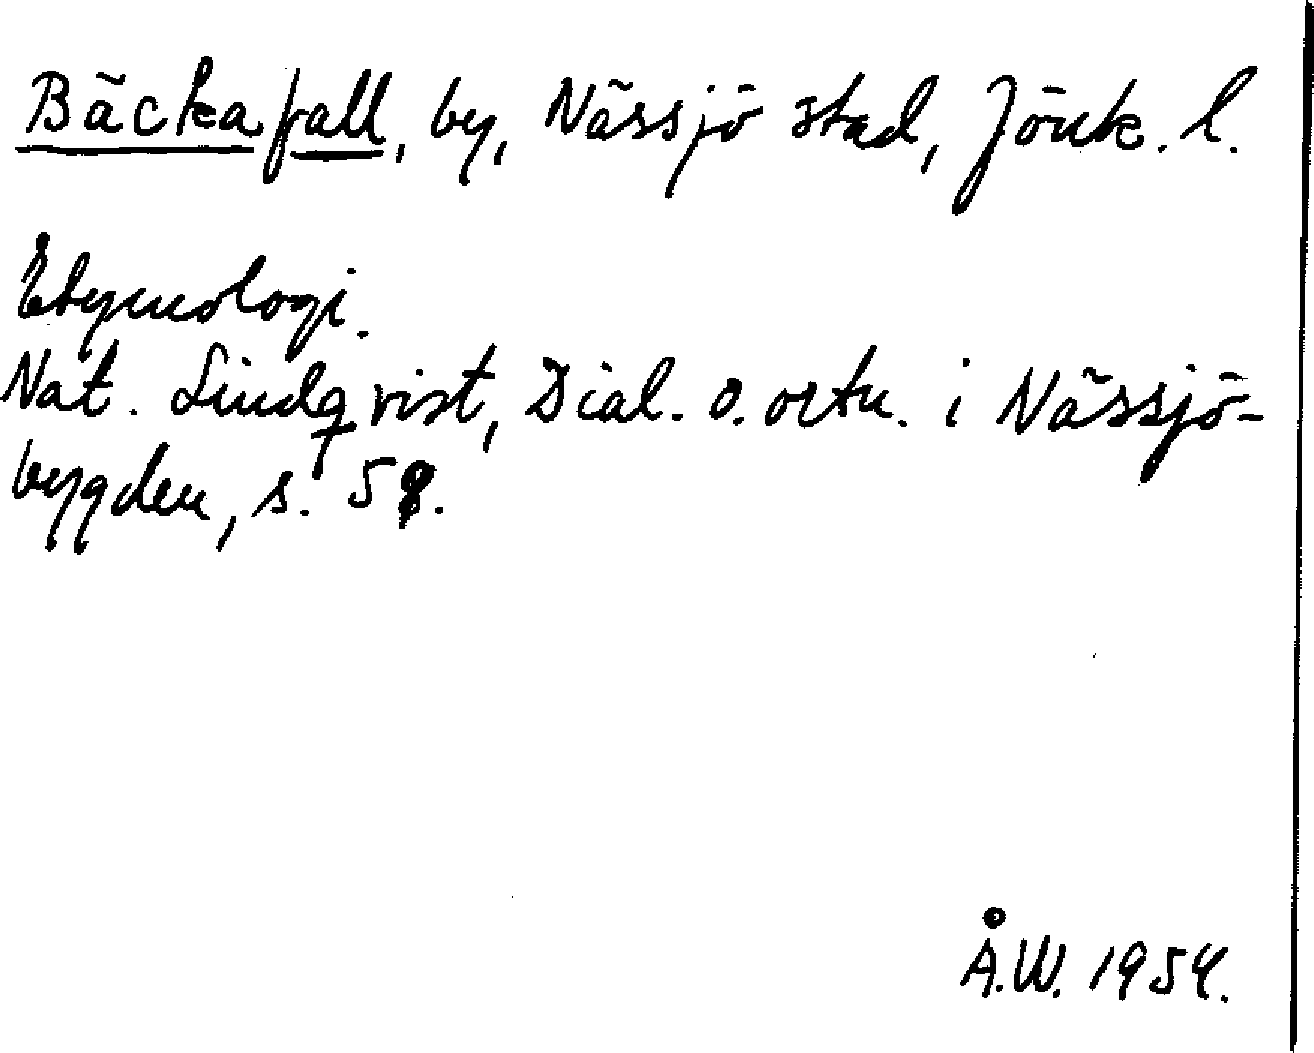 Bäckafall, by, Nässjö stad, Jönk. l.
Etymologi.
Nat. Lindqvist, Dial. o. ortn. i Nässjö-
bygden, s.
Å.W. 1954.